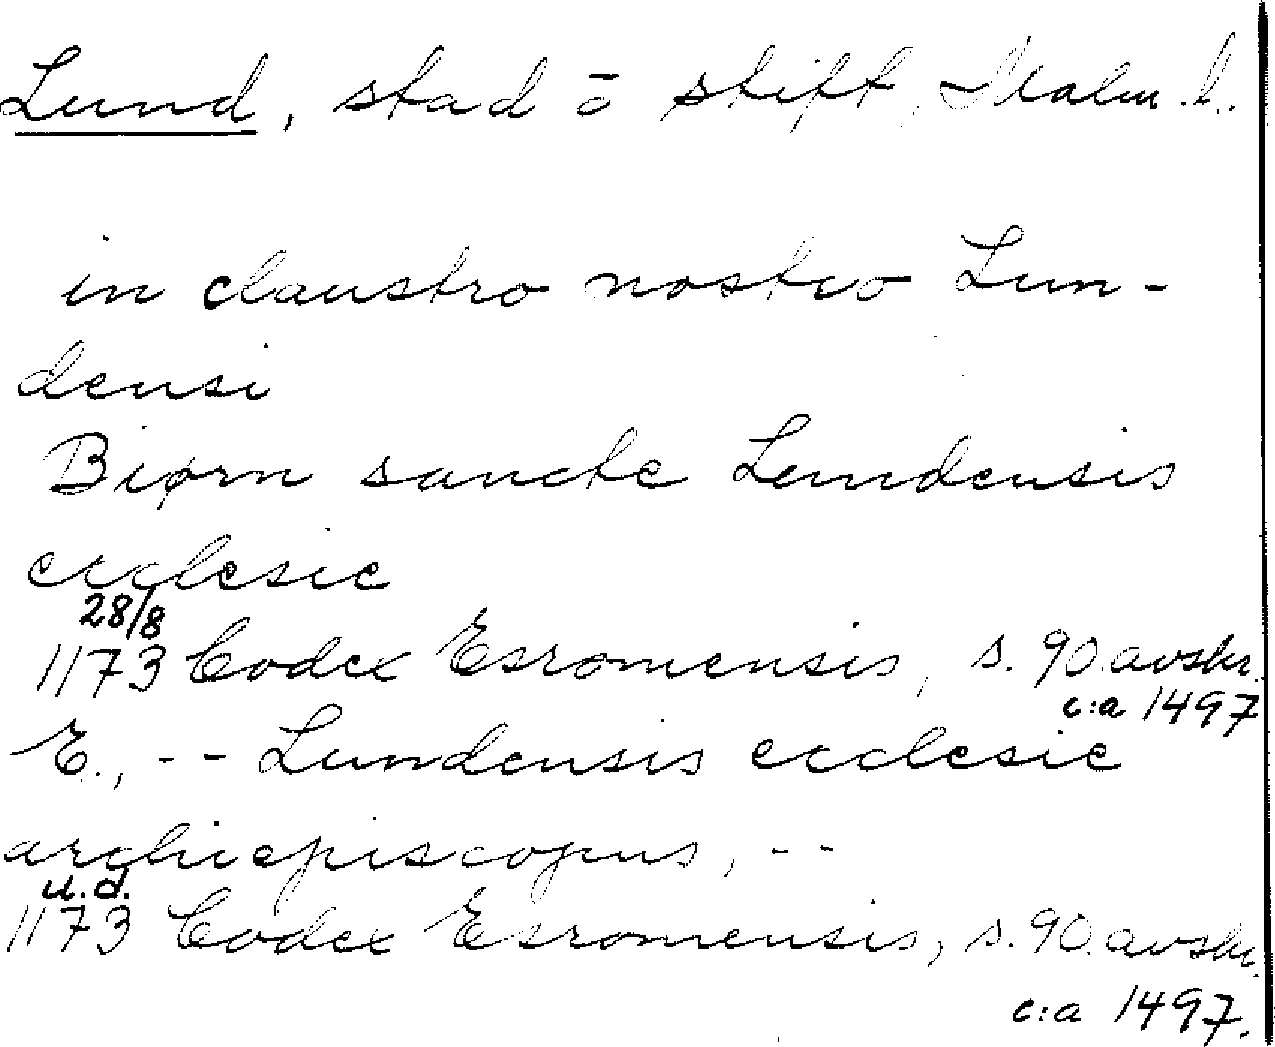 Lund, stad o stift, Malm. l.
in claustro nostro Lun-
densi
Biørn sancte Lundensis
ecclesie
28/8
1173 Codex Esromensis, s. 90. avskr.
c:a 1497
E., -- Lundensis ecclesie
archiepiscopus, --
u.d.
1173 Codex Esromensis, s. 90. avskr.
c:a 1497.